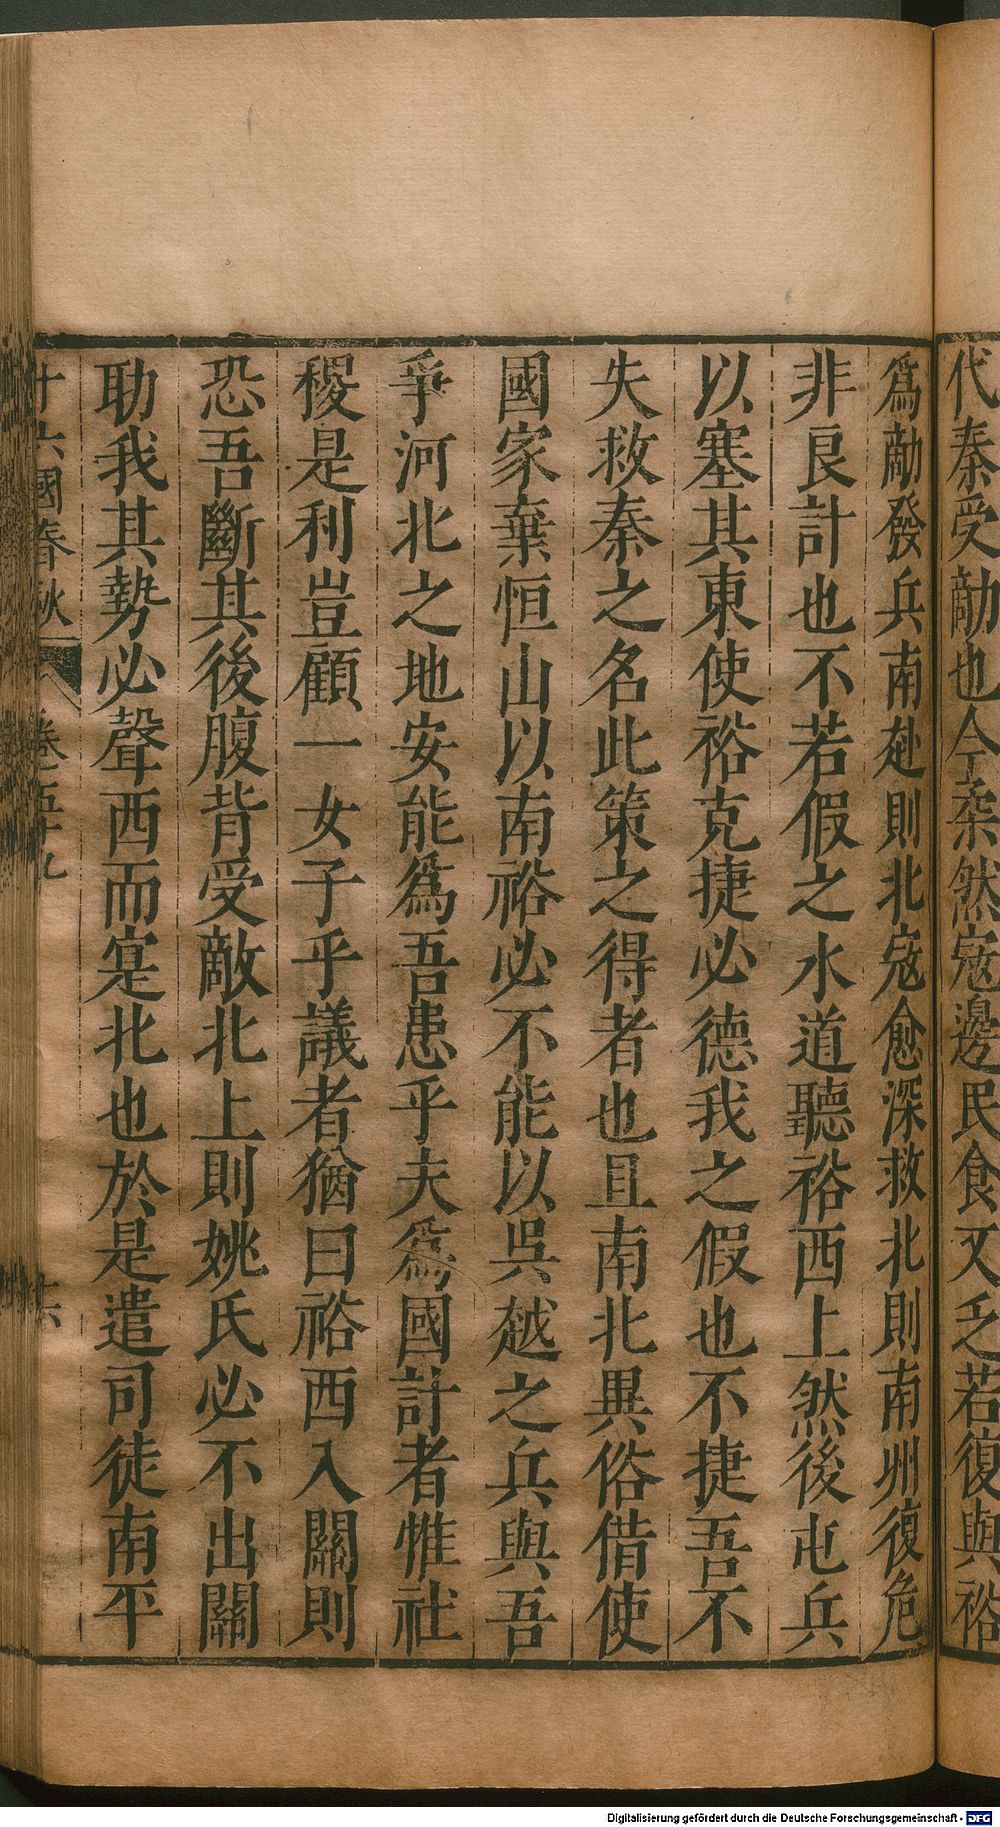 代秦受敵也今柔然寇邊民食又乏若復與裕
爲敵發兵南赴則北寇愈深救北則南州復危
非良計也不若假之水道聽裕西上然後屯兵
以塞其東使裕克捷必德我之假也不捷吾不
失救秦之名此策之得者也且南北異俗借使
國家棄恒山以南裕必不能以吳越之兵與吾
爭河北之地安能爲吾患乎夫爲國計者惟社
稷是利豈顧一女子乎議者猶曰裕西入關則
恐吾斷其後腹背受敵北上則姚氏必不出關
助我其勢必聲西而寔北也於是遣司徒南平
十六國春秋 卷五十九 六
Digitalisierung gefördert durch die Deutsche Forschungsgemeinschaft - DFG